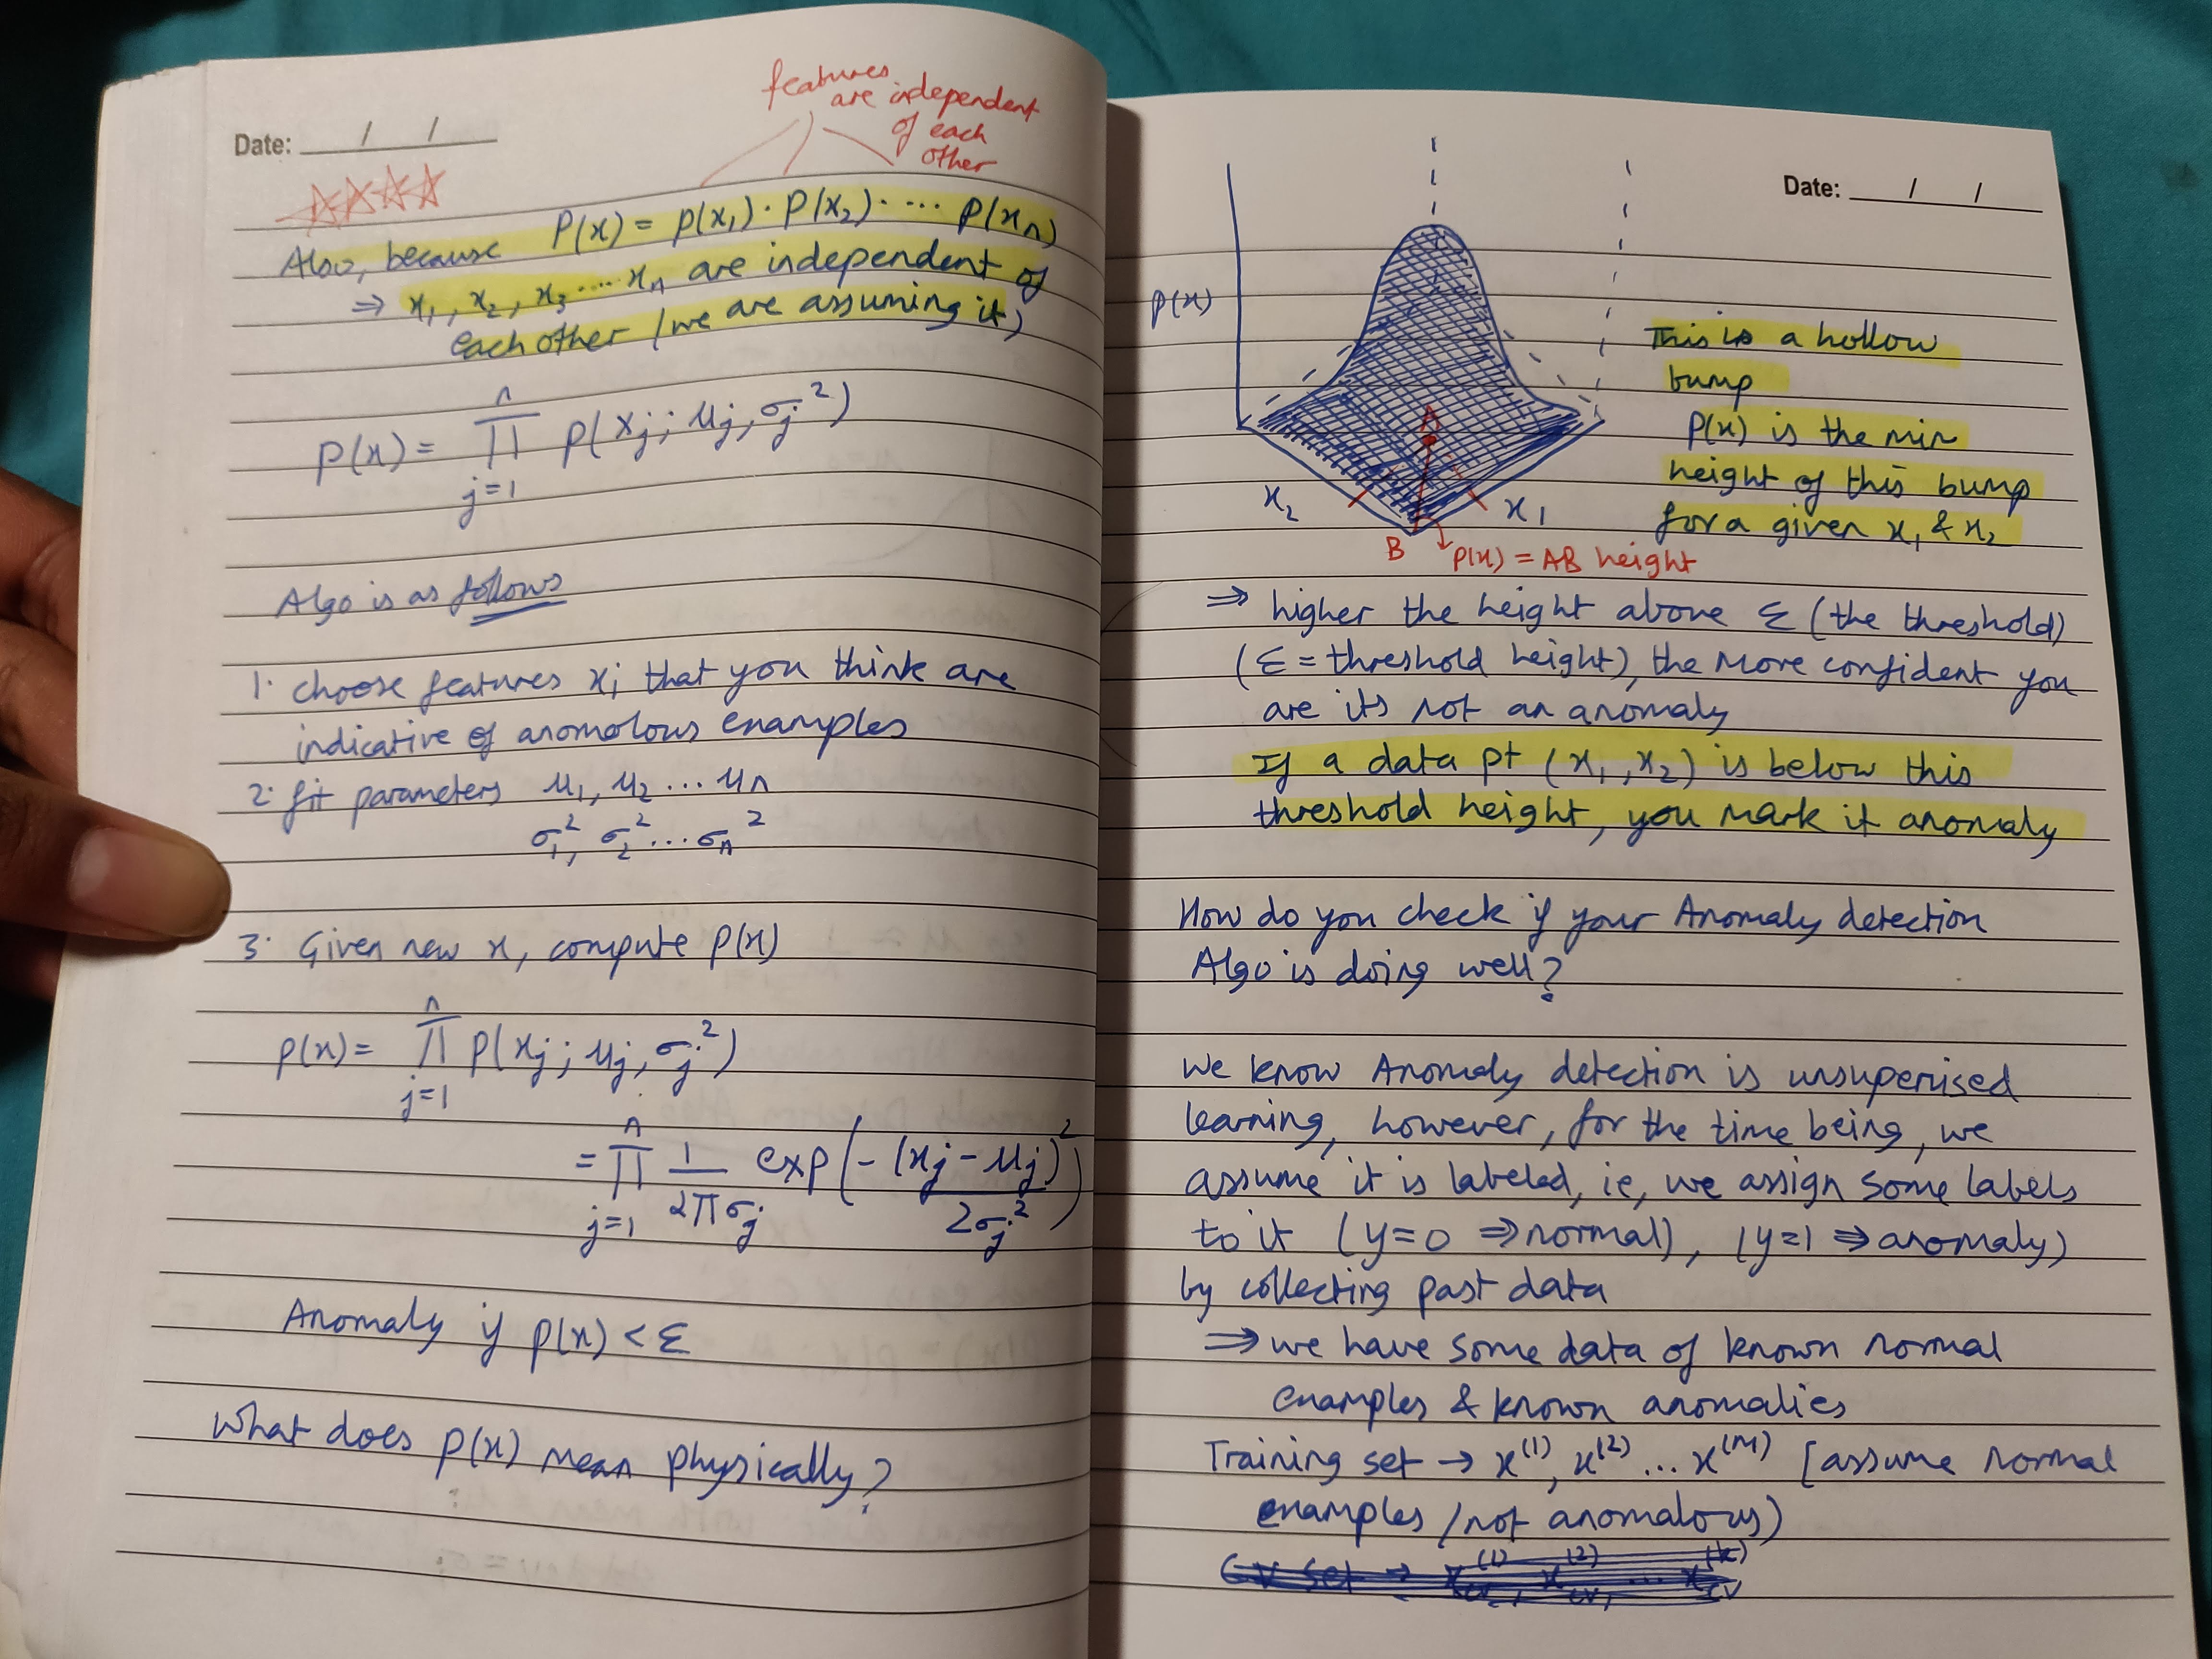 Date: / /
features
are independent
of each
other
P(x) = p(x₁) · P(x₂) · .... p(xₙ)
Also, because
⇒ x₁, x₂, x₃ .... xₙ are independent of
each other (we are assuming it)
p(x) = ∏ⁿⱼ₌₁ p(xⱼ; μⱼ, σⱼ²)
Algo is as follows
1. choose features xᵢ that you think are
indicative of anomolous examples
2. fit parameters μ₁, μ₂ ... μₙ
σ₁², σ₂² ... σₙ²
3. Given new x, compute p(x)
p(x) = ∏ⁿⱼ₌₁ p(xⱼ; μⱼ, σⱼ²)
= ∏ⁿⱼ₌₁ 1/(2πσⱼ) exp(-(xⱼ-μⱼ)²/2σⱼ²)
Anomaly if p(x) < Ɛ
What does p(x) mean physically?
Date: / /
p(x)
This is a hollow
bump
P(x) is the min
height of this bump
for a given x₁ & x₂
A
x₂
x₁
B
p(x) = AB height
⇒ higher the height above Ɛ (the threshold)
(Ɛ = threshold height), the more confident you
are its not an anomaly
If a data pt (x₁, x₂) is below this
threshold height, you mark it anomaly
How do you check if your Anomaly detection
Algo is doing well?
We know Anomaly detection is unsupervised
learning, however, for the time being, we
assume it is labeled, ie, we assign some labels
to it (y=0 ⇒ normal), (y=1 ⇒ anomaly)
by collecting past data
⇒ we have some data of known normal
examples & known anomalies
Training set → x⁽¹⁾, x⁽²⁾ ... x⁽ᴹ⁾ [assume normal
examples / not anomalous)
CV set → x⁽¹⁾cv, x⁽²⁾cv, ... x⁽ᵏ⁾cv